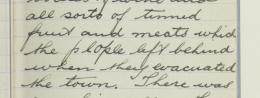 all sorts of tinned
fruit and meats which
the plople left behind
when they evacuated
the town. There was